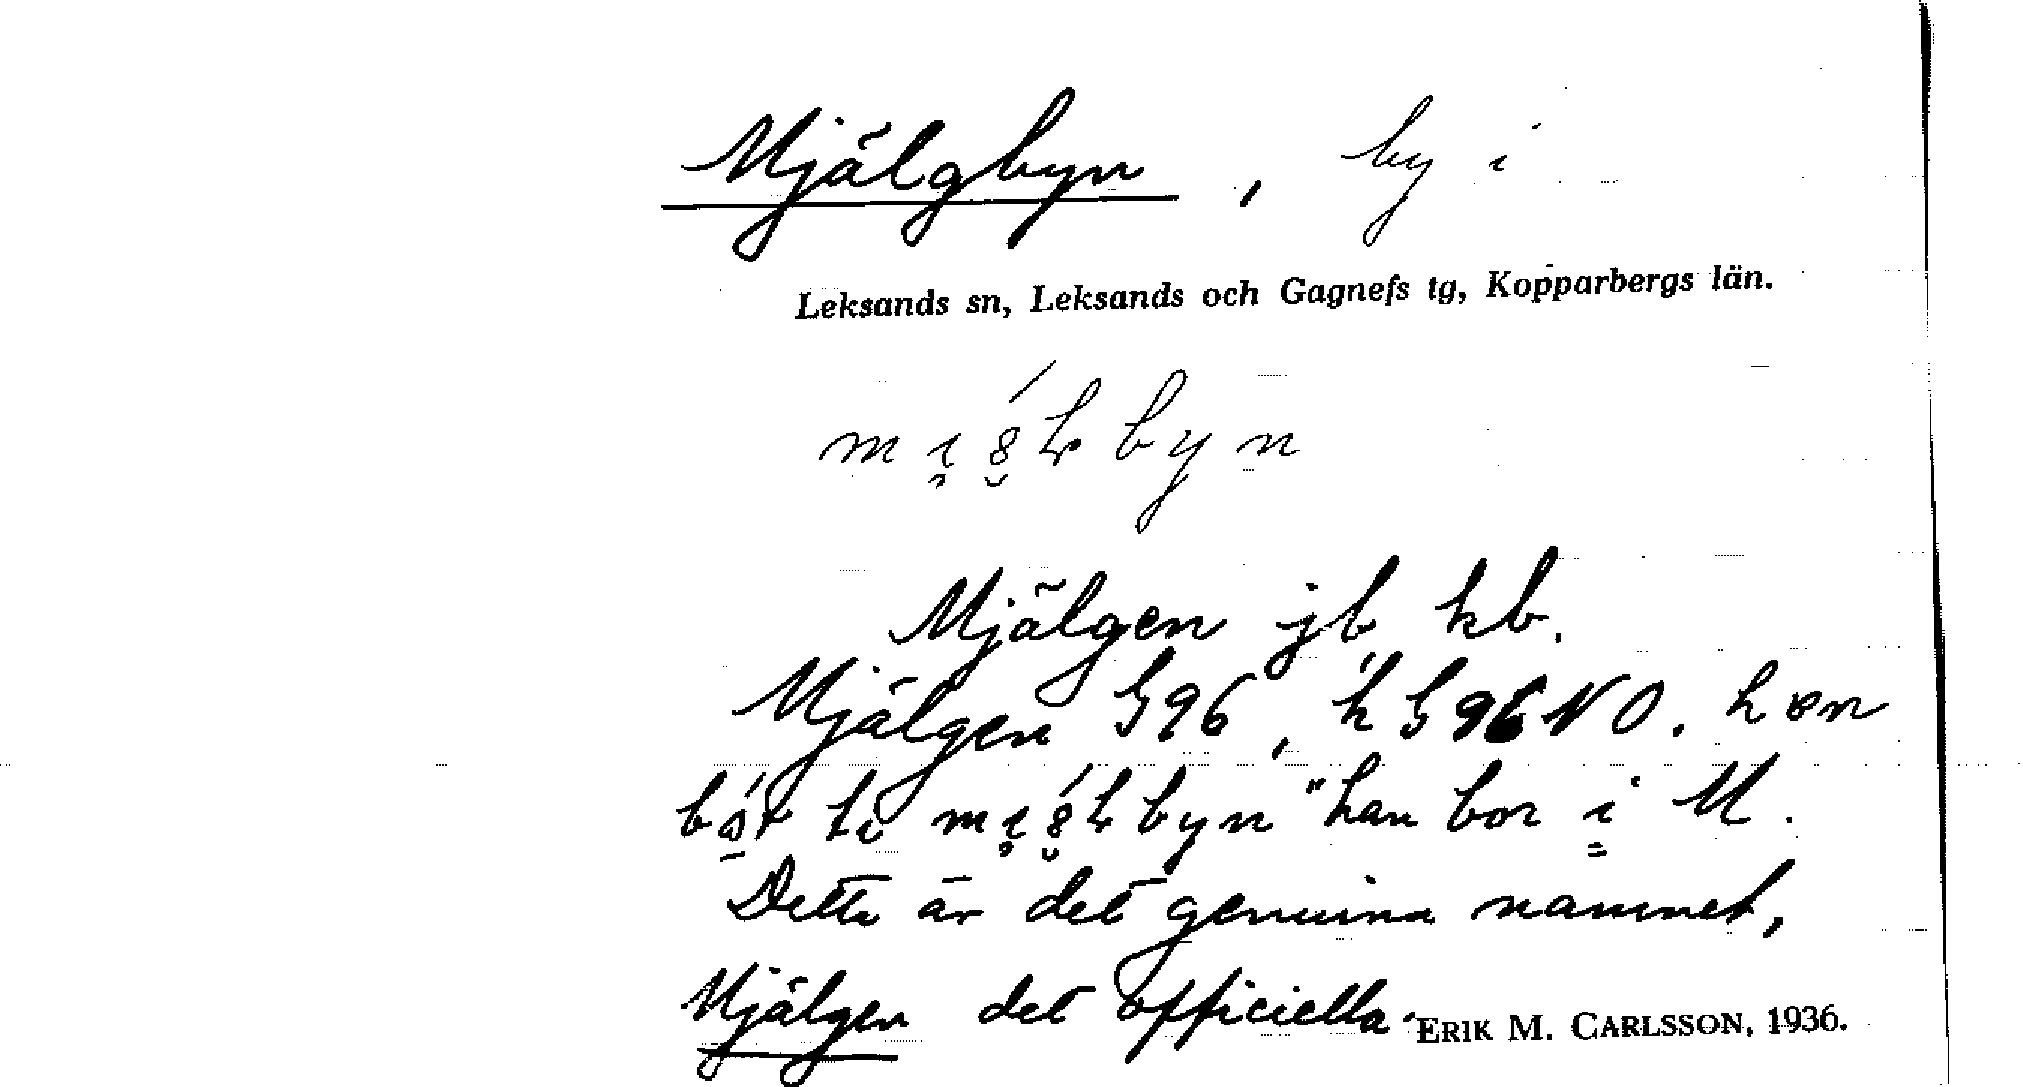 Mjälgbyn, by i
Leksands sn, Leksands och Gagnefs tg, Kopparbergs län.
byn
Mjälgen jb hb.
Mjälgen G96, k G96NO. hɵn
byn "han bor i M.
Detta är det genuina namnet,
Mjälgen det officiella.
ERIK M. CARLSSON, 1936.